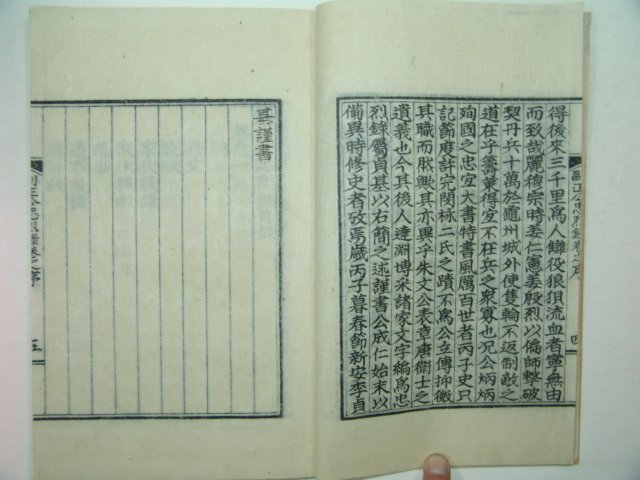 得後來三千里爲人讎役狼狽流血者寧無由
而致哉麗穆宗時姜仁憲姜殷烈以偏師擊破
契丹兵十萬於龜州城外使隻輪不返制敵之
道在乎籌策得宜不在兵之衆寡也况公炳炳
殉國之忠宜大書特書風厲百世者而史只
記節度許完閔林二氏之蹟不爲公立傳抑微
其職而然歟其亦異乎朱文公表章唐衛士之
遺義也今其後人達淵博采諸家文字編爲忠
烈錄屬貞基以右簡之述謹書公成仁始末以
備異時修史者攷焉歲丙子暮春節新安李貞
基謹書
公忠烈錄卷之序
四
五